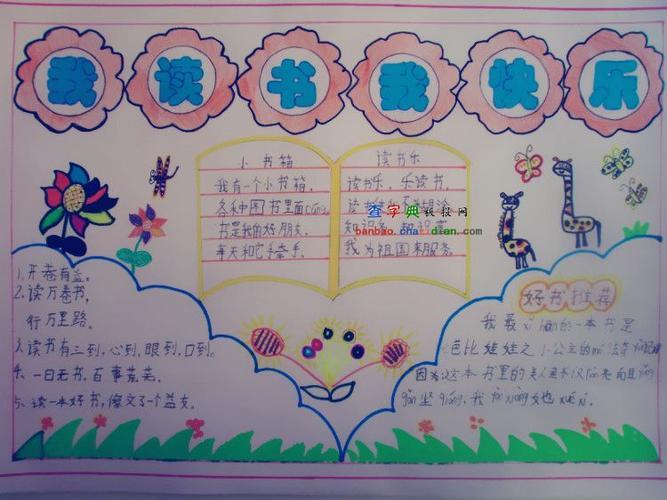 我读书我快乐
小书箱
我有一个小书箱，
各种图书里面cáng
书是我的好朋友，
每天和它手牵手。
读书乐
读书乐，乐读书，
读书
知识
我为祖国来服务。
查字典板报网
banbao.chazidian.com
1、开卷有益。
2、读万卷书，
行万里路。
3、读书有三到，心到、眼到、口到。
4、一日无书，百事荒芜。
5、读一本好书，像交了一个益友。
好书推荐
我最xǐ huan的一本书是
芭比娃娃之小公主的mí法
因为这本书里的主人
坚qiáng，我